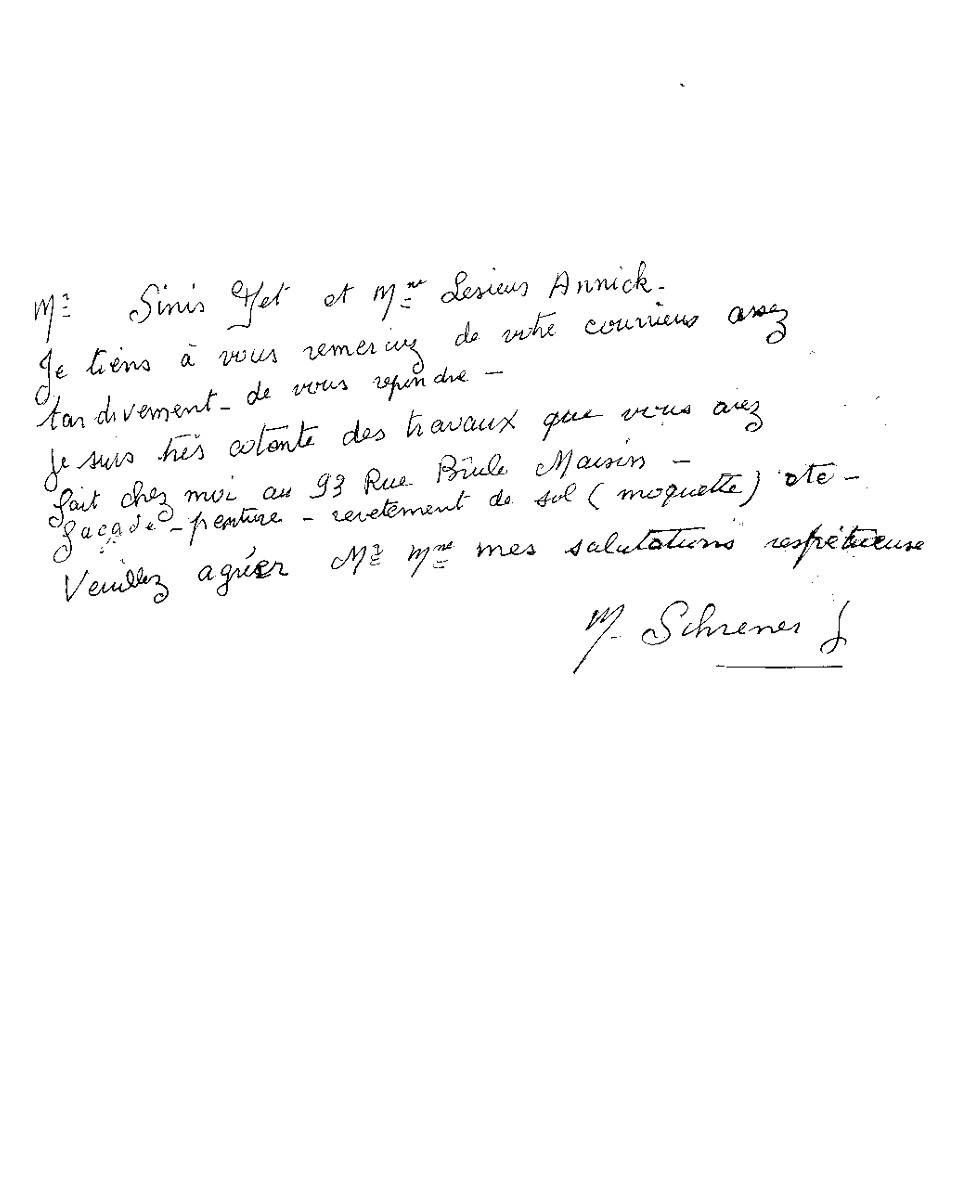 Mr Sinis Yet et Mme Lesieur Annick.
Je tiens à vous remerciez de votre courrieur assez
tardivement - de vous repondre -
Je suis très cotante des travaux que vous avez
fait chez moi au 93 Rue Brule Maison -
façade - penture - revetement de sol (moquette) ete -
Veuillez agréer Mr Mme mes salutations respétueuse
M. Schrener J